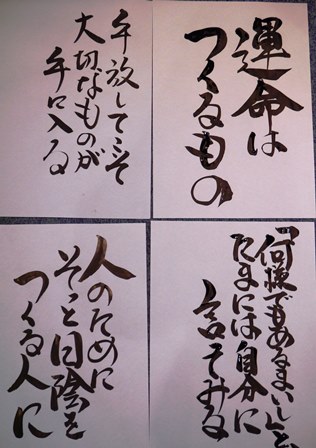 運命は
つくるもの
手放してこそ
大切なものが
手に入る
「何様でもあるまいし」と、
たまには自分に
言ってみる
人のために
そっと日陰を
つくる人に